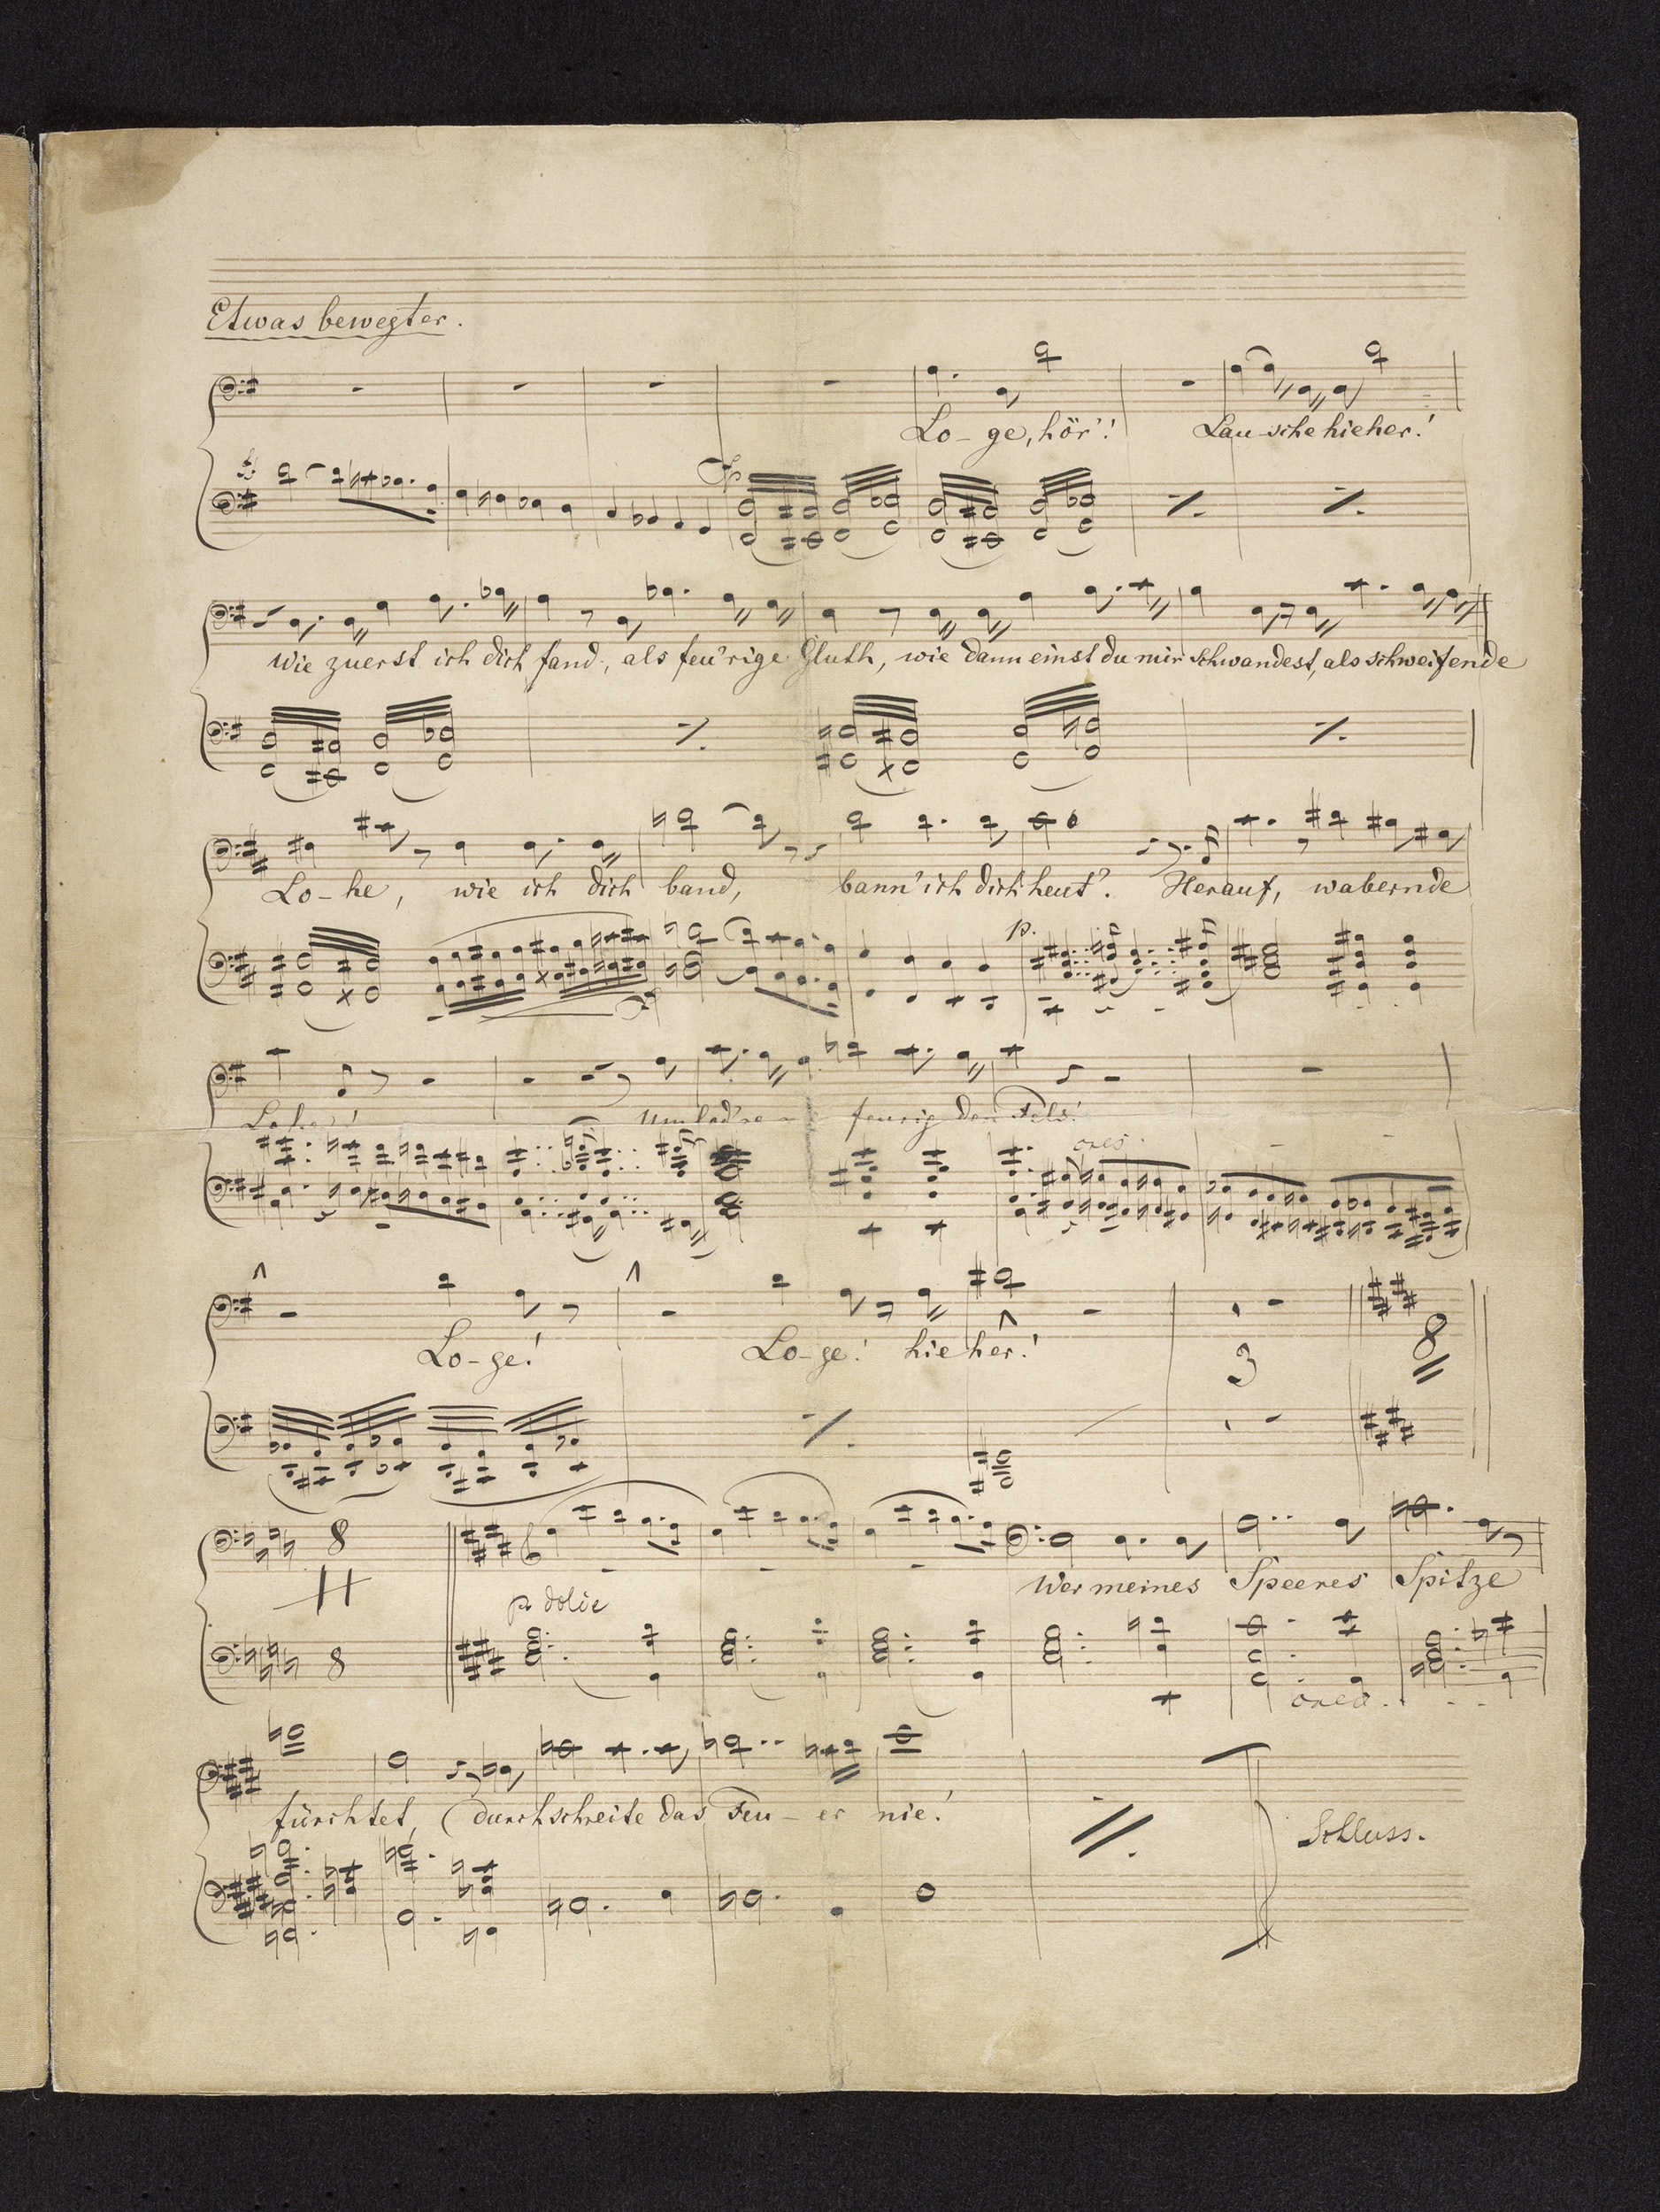 Etwas bewegter.
Lo-ge, hör'! Lau-sche hieher!
Wie zuerst ich dich fand, als feu'rige Gluth, wie dann einst du mir schwandest, als schweifende
Lo-he, wie ich dich band, bann' ich dich heut'. Herauf, wabernde
p.
Lohe! Umlod're feurig den Fels!
cres
Lo-ge! Lo-ge! hieher!
3 8
8
p dolce
Wer meines Speeres Spitze
8
cresc.
fürchtet, durchschreite das Feu-er nie!
Schluss.